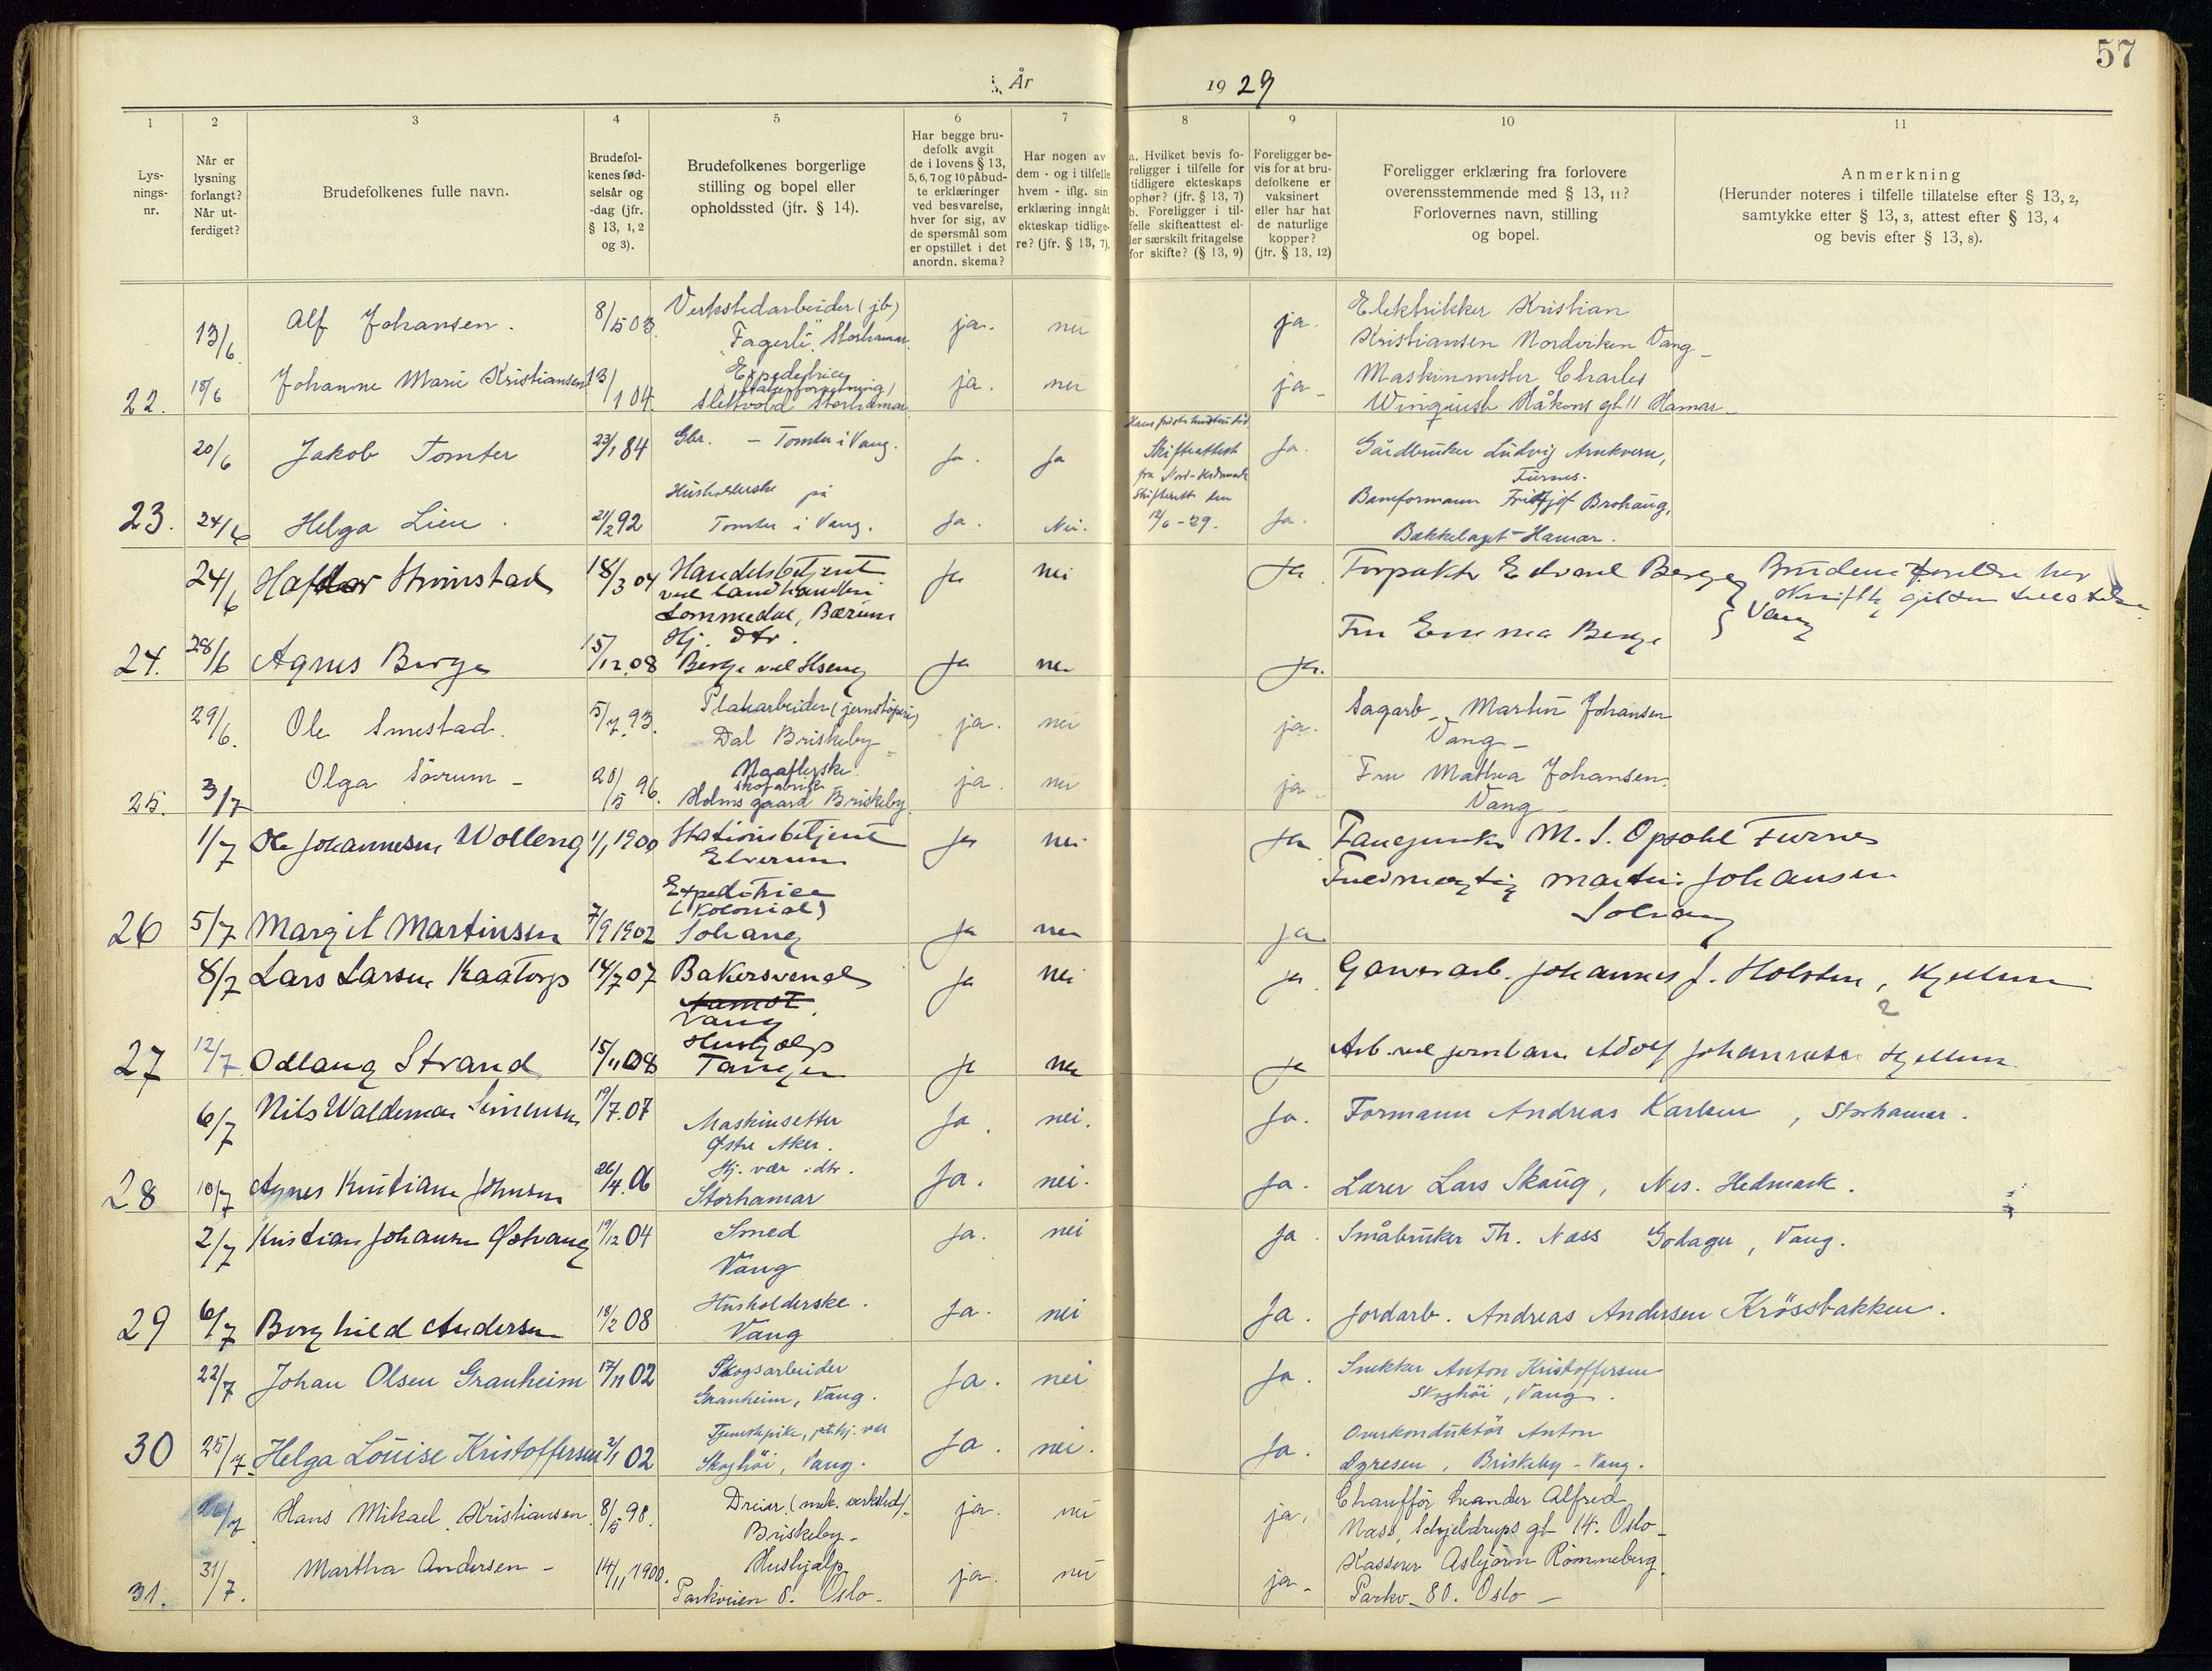 57
År 1929
1 2 3 4 5 6 7 8 9 10 11
Lys-
nings-
nr.
Når er
lysning
forlangt?
Når ut-
ferdiget?
Brudefolkenes fulle navn.
Brudefol-
kenes fød-
selsår og
-dag (jfr.
§ 13, 1, 2
og 3).
Brudefolkenes borgerlige
stilling og bopel eller
opholdssted (jfr. § 14).
Har begge bru-
defolk avgit
de i lovens § 13,
5, 6, 7 og 10 påbud-
te erklæringer
ved besvarelse,
hver for sig, av
de spørsmål som
er opstillet i det
anordn. skema?
Har nogen av
dem - og i tilfelle
hvem - iflg. sin
erklæring inngåt
ekteskap tidlige-
re? (jfr. § 13, 7).
a. Hvilket bevis fo-
religger i tilfelle for
tidligere ekteskaps
ophør? (jfr. § 13, 7)
b. Foreligger i til-
felle skifteattest el-
ler særskilt fritagelse
for skifte? (§ 13, 9)
Foreligger be-
vis for at bru-
defolkene er
vaksinert
eller har hat
de naturlige
kopper?
(jfr. § 13, 12)
Foreligger erklæring fra forlovere
overensstemmende med § 13, 11?
Forlovernes navn, stilling
og bopel.
Anmerkning
(Herunder noteres i tilfelle tillatelse efter § 13, 2,
samtykke efter § 13, 3, attest efter § 13, 4
og bevis efter § 13, 8).
13/6. Alf Johansen. 8/5 03 Verkstedarbeider (jb) ja. nei ja. Elektrikker Kristian
"Fagerli" Storhamar. Kristiansen Nordviken Vang
22. 18/6 Johanne Marie Kristiansen 13/1 04. Expeditrice ja. nei ja Maskinmester Charles
Slettvold Storhamar Winquist Håkons gt 11 Hamar
20/6 Jakob Tomter 23/1 84 Gbr. - Tomter i Vang. Ja. Ja Skifteattest Ja. Gårdbruker Ludvig Arnkvern,
fra Nord-Hedmark Furnes.
23. 24/6 Helga Lien. 21/2 92 Husholderske på
Tomter i Vang. Ja. Nei. Skifterett den 12/6-29. Ja. Baneformann Fritjof Brohaug,
Bakkelaget Hamar.
24/6 Strimstad 18/3 04 Handelsbetjent Ja nei Ja Forpakter Edvard Berge
ved landhandleri
Lommedal, Bærum Vang
24. 28/6 Agnes Berge 15/12.08 Hj. dtr. Ja nei Ja. Fru Emma Berge
29/6. Ole Smestad. 5/7.93. ja. nei ja. Sagarb. Martin Johansen
Dal Briskeby Vang
25. 3/7 Olga Sörum 20/5 96. skofabrikk ja. nei ja Fru Mathea Johansen.
Holmsgaard Briskeby Vang
1/7 Ole Johannesen Wolleng 1/1 1900 Stationsbetjent Ja nei Ja M. S. Opsahl Furnes
Elverum Martin Johansen
26 5/7 Margit Martinsen 7/9 1902 Expeditrice
(Kolonial)
Solvang Ja nei Ja Solvang
8/7 Lars Larsen Kaatorp 14/7 07 Bakersvend Ja nei Ja Johannes J. Holsten, Kjellum
Vang 2
27 12/7 Odlaug Strand 15/11 08 Hushjælp
Tangen Ja nei Ja Arb. ved jernbanen Adolf Johannesen Kjellum
6/7 Nils Waldemar Simensen 19/7.07 Maskinsetter Ja. nei. Ja. Formann Andreas Karlsen, Storhamar.
Østre Aker.
28 10/7 Agnes Kristiane Johnsen 26/4.06 Hj. vær. dtr. Ja. nei. Ja. Lærer Lars Skaug, Nes. Hedmark.
Storhamar
2/7 Kristian Johansen Östvang 19/12 04 Smed Ja. nei Ja. Småbruker Th. Næss Godager, Vang.
Vang
29 6/7 Borghild Andersen 18/2 08 Husholderske. Ja. nei Ja. Jordarb. Andreas Andersen Krössbakken.
Vang
22/7 Johan Olsen Granheim 17/11 02 Skogsarbeider Ja. nei Ja. Snekker Anton Kristoffersen
Granheim, Vang. Skoghöi, Vang.
30 25/7 Helga Louise Kristoffersen 2/1 02 Tjenestepike, Ja. nei. Ja. Overkonduktör Anton
Skoghöi, Vang. Dyresen, Briskeby - Vang.
26/7 Hans Mikael Kristiansen 8/5 98. Dreier (mek. verksted) ja. nei ja, Chauffør Leander Alfred
Briskeby Næss, Schjeldrups gt 14. Oslo
31. 31/7. Martha Andersen 14/11 1900. Hushjælp ja. nei ja Kasserer Asbjörn Rømmeberg.
Parkveien 8. Oslo Parkv. 80. Oslo